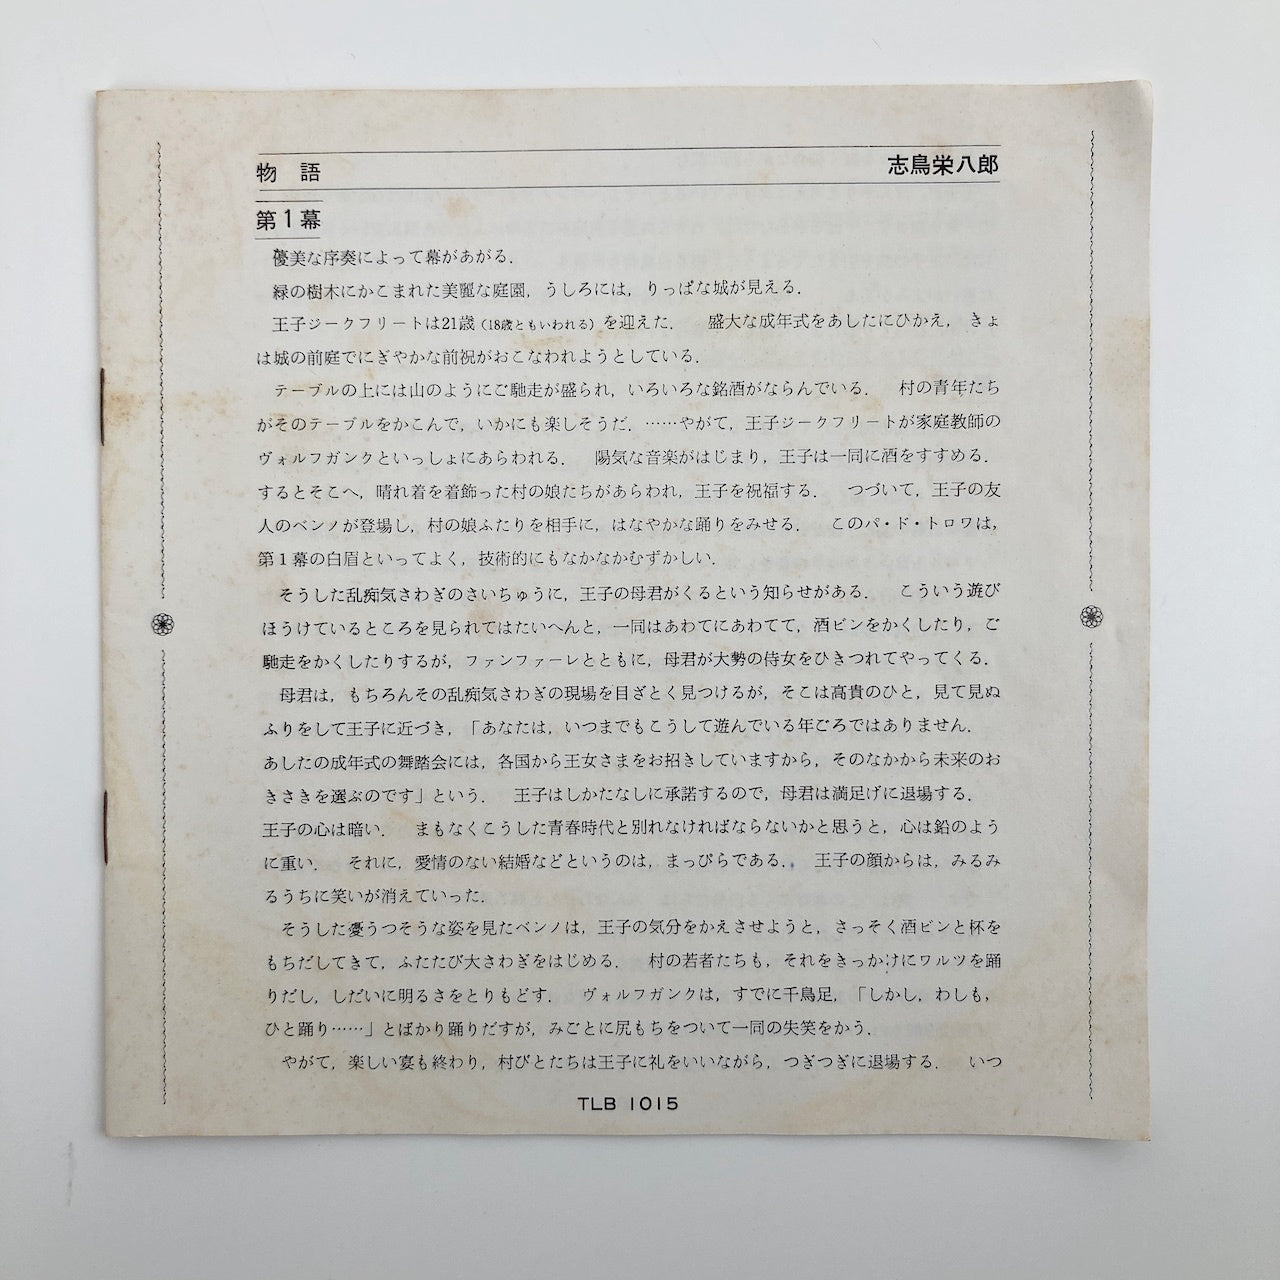 物語
志鳥栄八郎
第1幕
優美な序奏によって幕があがる．
緑の樹木にかこまれた美麗な庭園，うしろには，りっぱな城が見える．
王子ジークフリートは21歳（18歳ともいわれる）を迎えた．　盛大な成年式をあしたにひかえ，きょ
は城の前庭でにぎやかな前祝がおこなわれようとしている．
テーブルの上には山のようにご馳走が盛られ，いろいろな銘酒がならんでいる．　村の青年たち
がそのテーブルをかこんで，いかにも楽しそうだ．……やがて，王子ジークフリートが家庭教師の
ヴォルフガンクといっしょにあらわれる．　陽気な音楽がはじまり，王子は一同に酒をすすめる．
するとそこへ，晴れ着を着飾った村の娘たちがあらわれ，王子を祝福する．　つづいて，王子の友
人のベンノが登場し，村の娘ふたりを相手に，はなやかな踊りをみせる．　このパ・ド・トロワは，
第1幕の白眉といってよく，技術的にもなかなかむずかしい．
そうした乱痴気さわぎのさいちゅうに，王子の母君がくるという知らせがある．　こういう遊び
ほうけているところを見られてはたいへんと，一同はあわてにあわてて，酒ビンをかくしたり，ご
馳走をかくしたりするが，ファンファーレとともに，母君が大勢の侍女をひきつれてやってくる．
母君は，もちろんその乱痴気さわぎの現場を目ざとく見つけるが，そこは高貴のひと，見て見ぬ
ふりをして王子に近づき，「あなたは，いつまでもこうして遊んでいる年ごろではありません．
あしたの成年式の舞踏会には，各国から王女さまをお招きしていますから，そのなかから未来のお
きさきを選ぶのです」という．　王子はしかたなしに承諾するので，母君は満足げに退場する．
王子の心は暗い．　まもなくこうした青春時代と別れなければならないかと思うと，心は鉛のよう
に重い．　それに，愛情のない結婚などというのは，まっぴらである．．　王子の顔からは，みるみ
るうちに笑いが消えていった．
そうした憂うつそうな姿を見たベンノは，王子の気分をかえさせようと，さっそく酒ビンと杯を
もちだしてきて，ふたたび大さわぎをはじめる．　村の若者たちも，それをきっかけにワルツを踊
りだし，しだいに明るさをとりもどす．　ヴォルフガンクは，すでに千鳥足，「しかし，わしも，
ひと踊り……」とばかり踊りだすが，みごとに尻もちをついて一同の失笑をかう．
やがて，楽しい宴も終わり，村びとたちは王子に礼をいいながら，つぎつぎに退場する．　いつ
TLB 1015